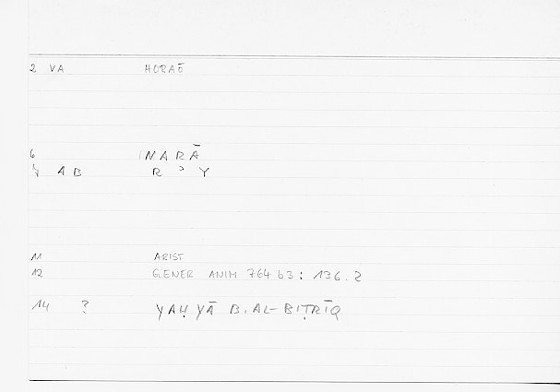 2 VA HORAŌ
6 NARĀ
AB R ʾ Y
11 ARIST
12 GENER ANIM 764 b3: 136.2
14 ? YAḤYĀ B. AL-BIṬRĪQ